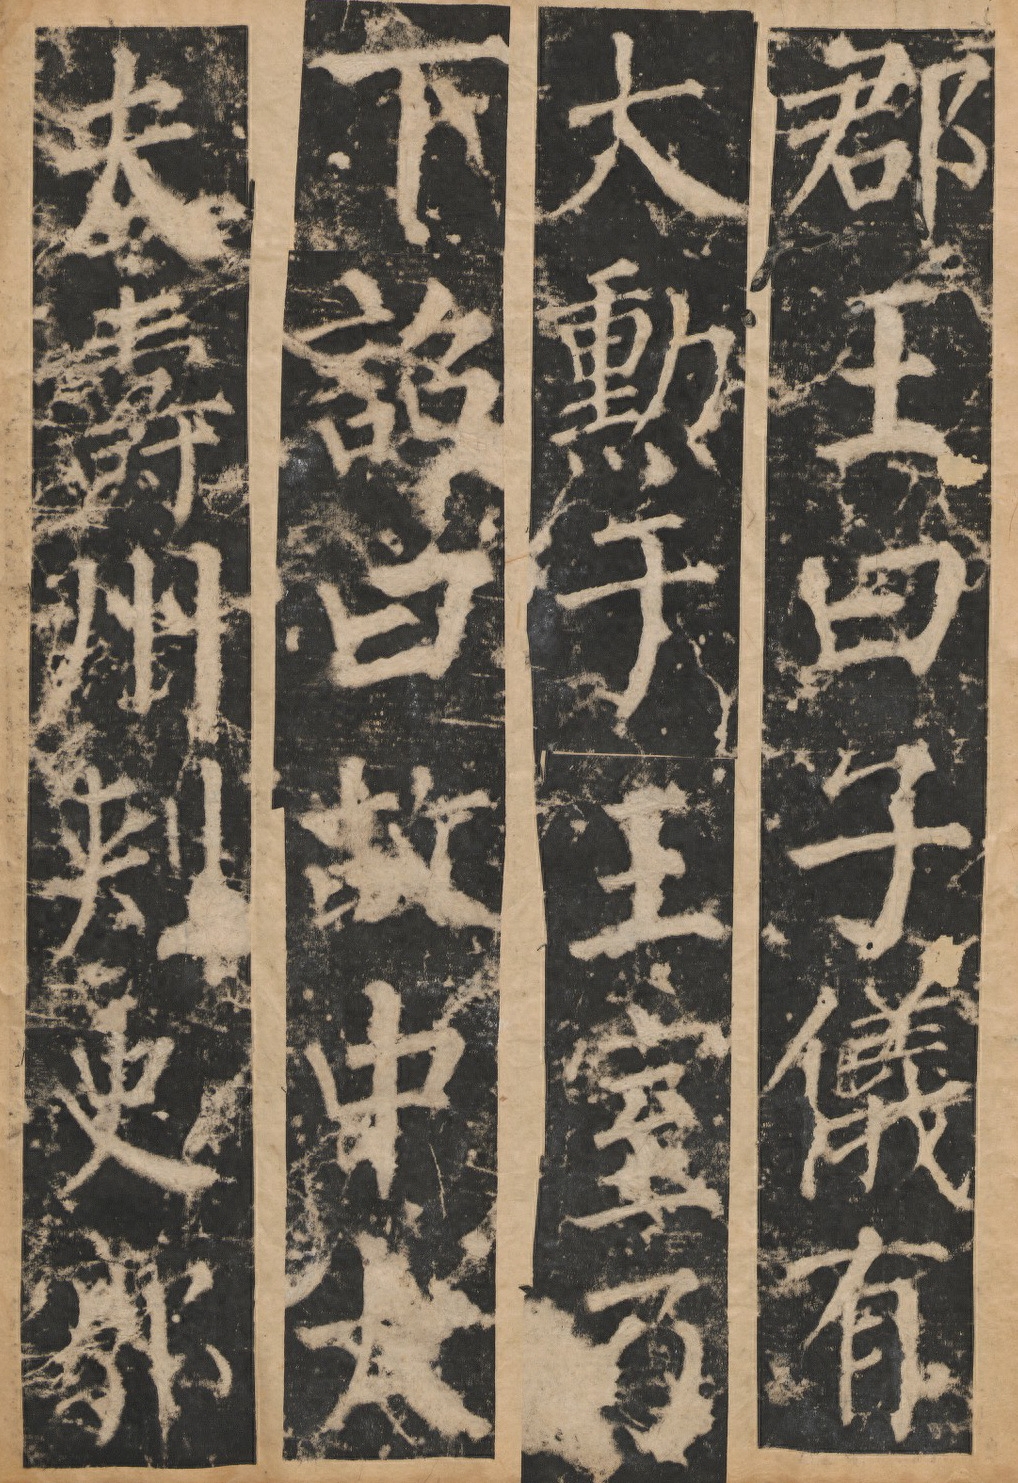 郡王曰子儀有
大勳于王室乃
下詔曰故中大
夫壽州刺史郭